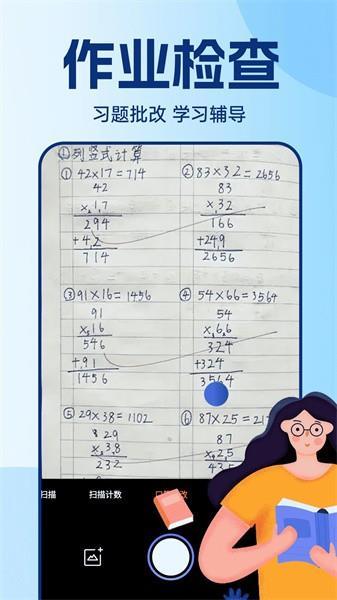 作业检查
习题批改 学习辅导
一列竖式计算
① 42×17=714
42
×17
294
+42
714
② 83×32=2656
83
×32
166
+249
2656
③ 91×16=1456
91
×16
546
+91
1456
④ 54×66=3564
54
×66
324
+324
3564
⑤ 29×38=1102
29
×38
232
⑥ 87×25=21
87
×25
435
扫描
扫描计数